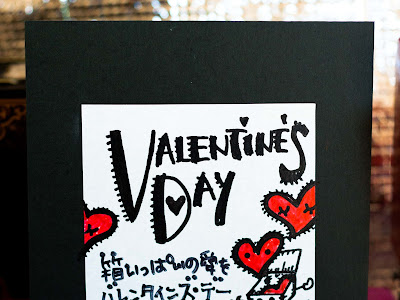 VALENTINE'S
DAY
箱いっぱいの愛を
バレンタインズ・デー